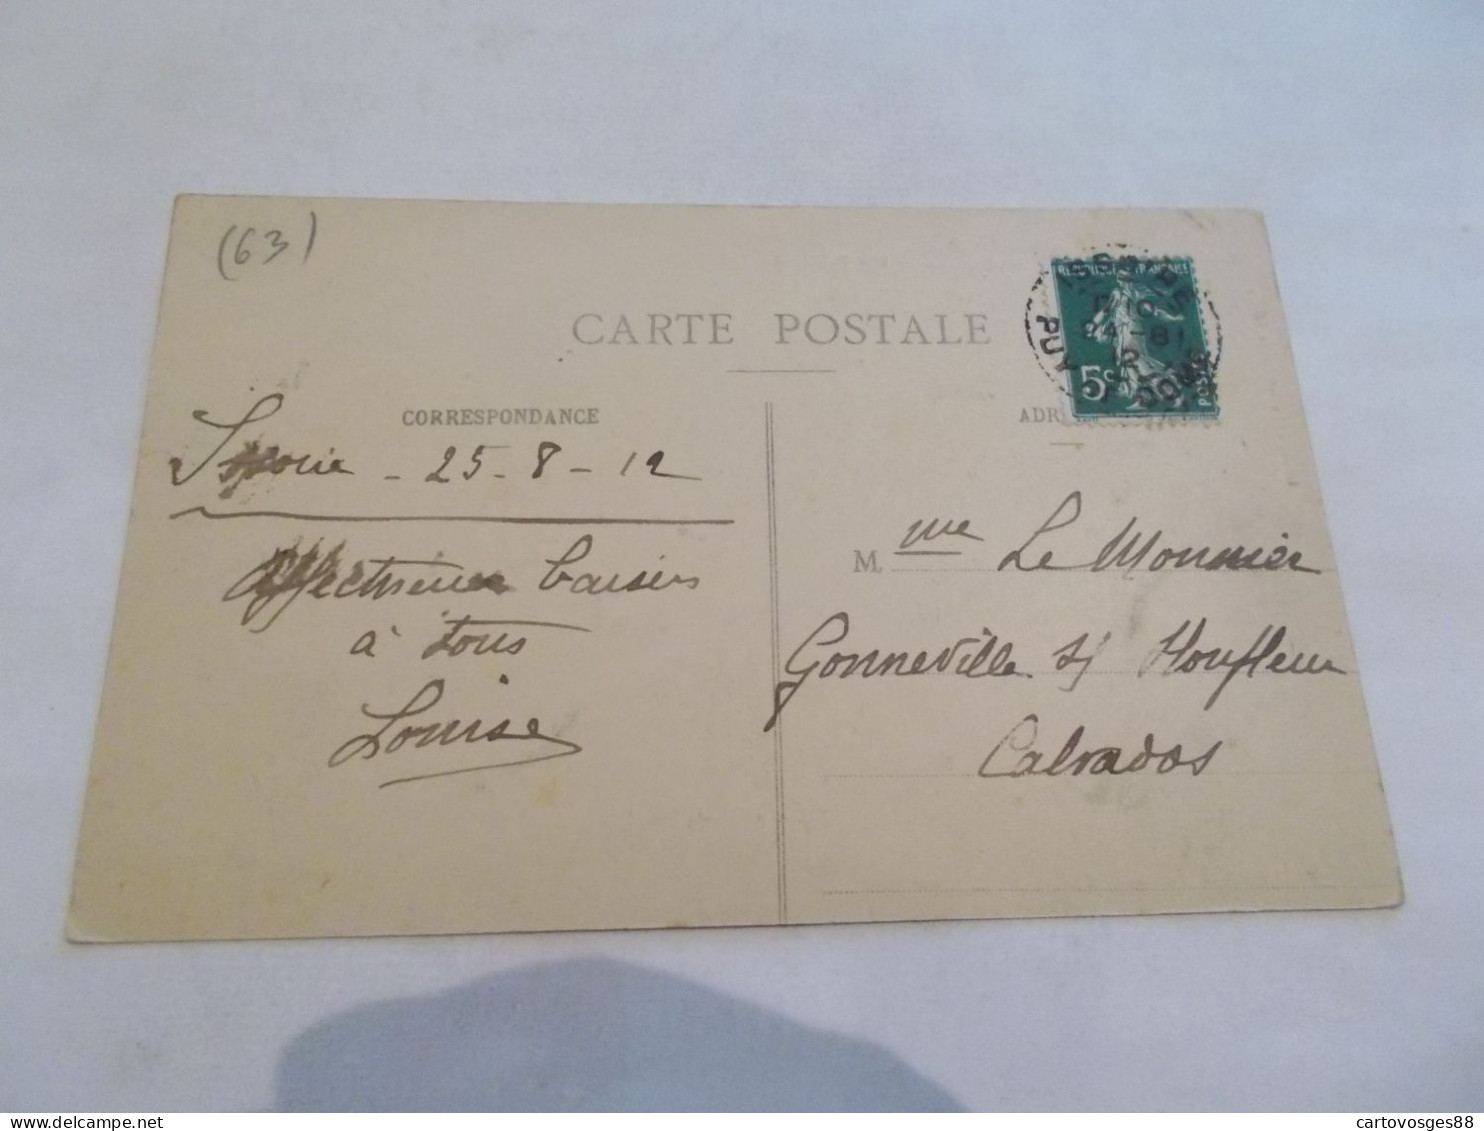 (63)
CARTE POSTALE
ISSOIRE
24 - 8
12
PUY DE DOME
REPUBLIQUE FRANÇAISE
5c
CORRESPONDANCE
ADR
25 - 8 - 12
Affectueux baisers
à tous
Louise
Mme Le Monnier
Gonneville s/ Honfleur
Calvados
cartovosges88